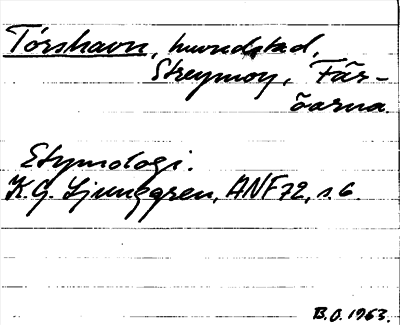 Tórshavn, huvudstad,
Streymoy, Fär-
öarna.
Etymologi.
K.G. Ljunggren, ANF 72, s. 6.
B.O. 1963.